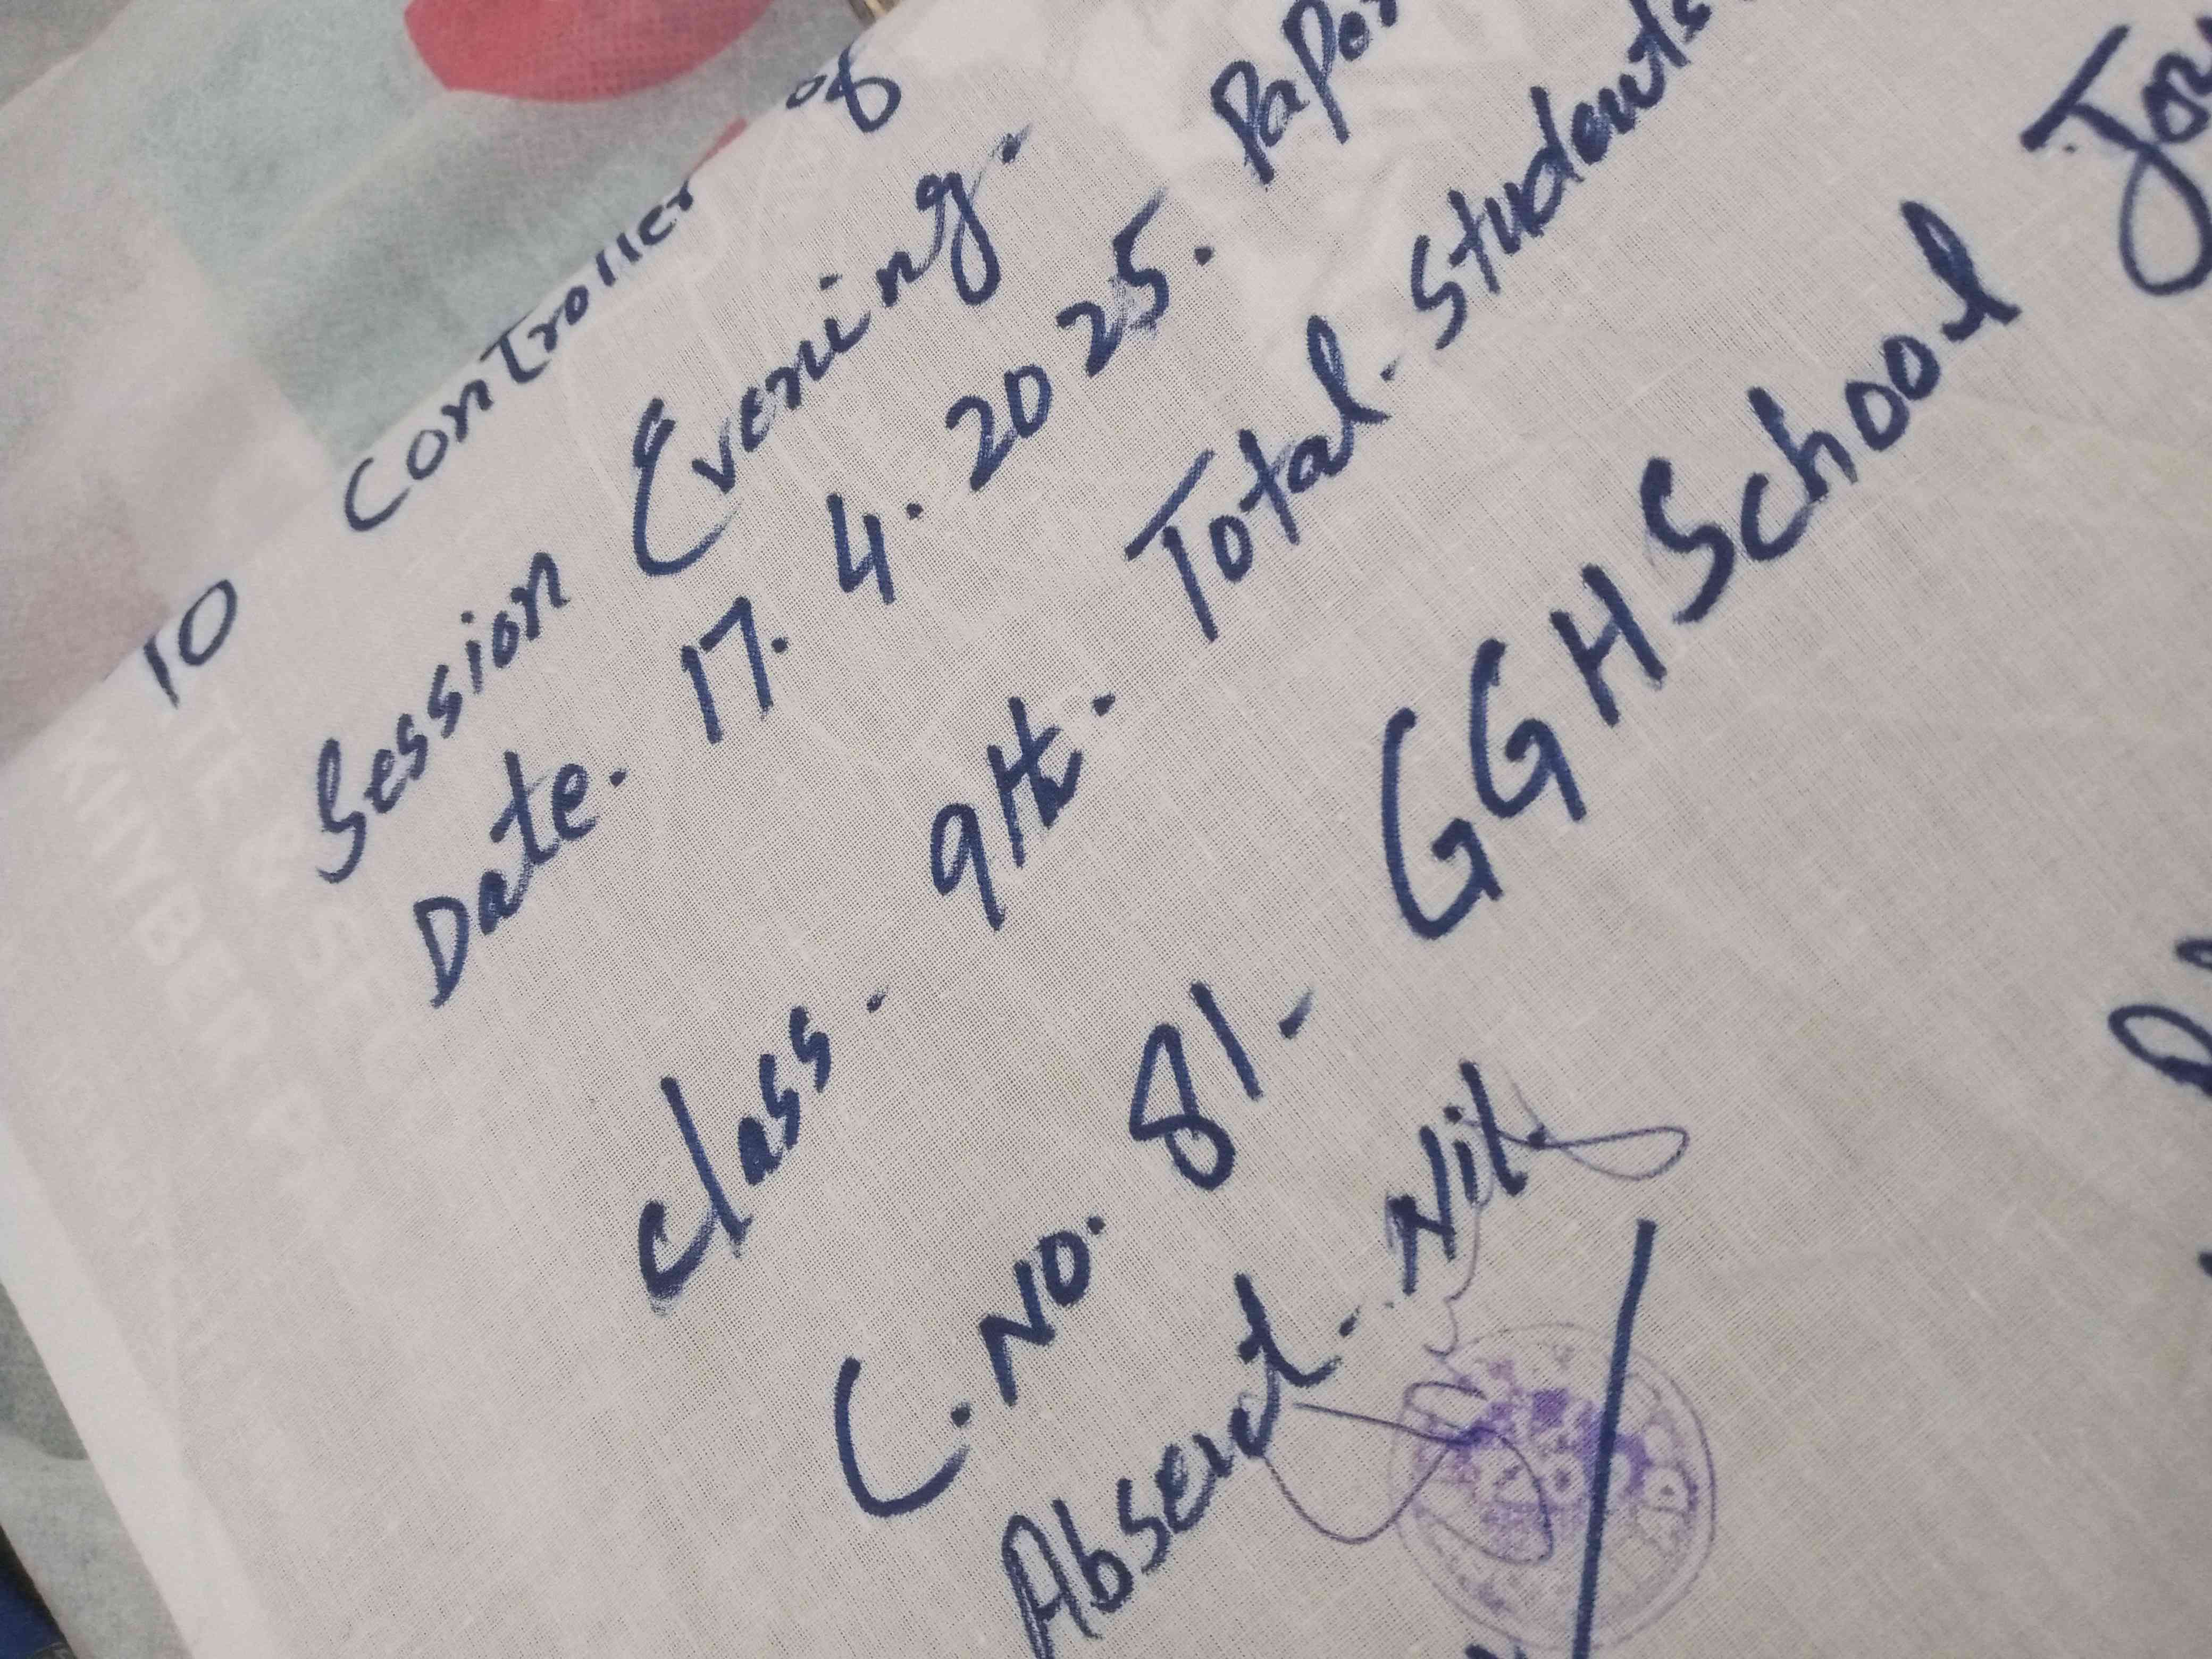 10 Controller of
Session Evening.
Date. 17. 4. 2025.
Class. 9th. Total. Students
C. No. 81- GGHSchool
Absent. Nil.